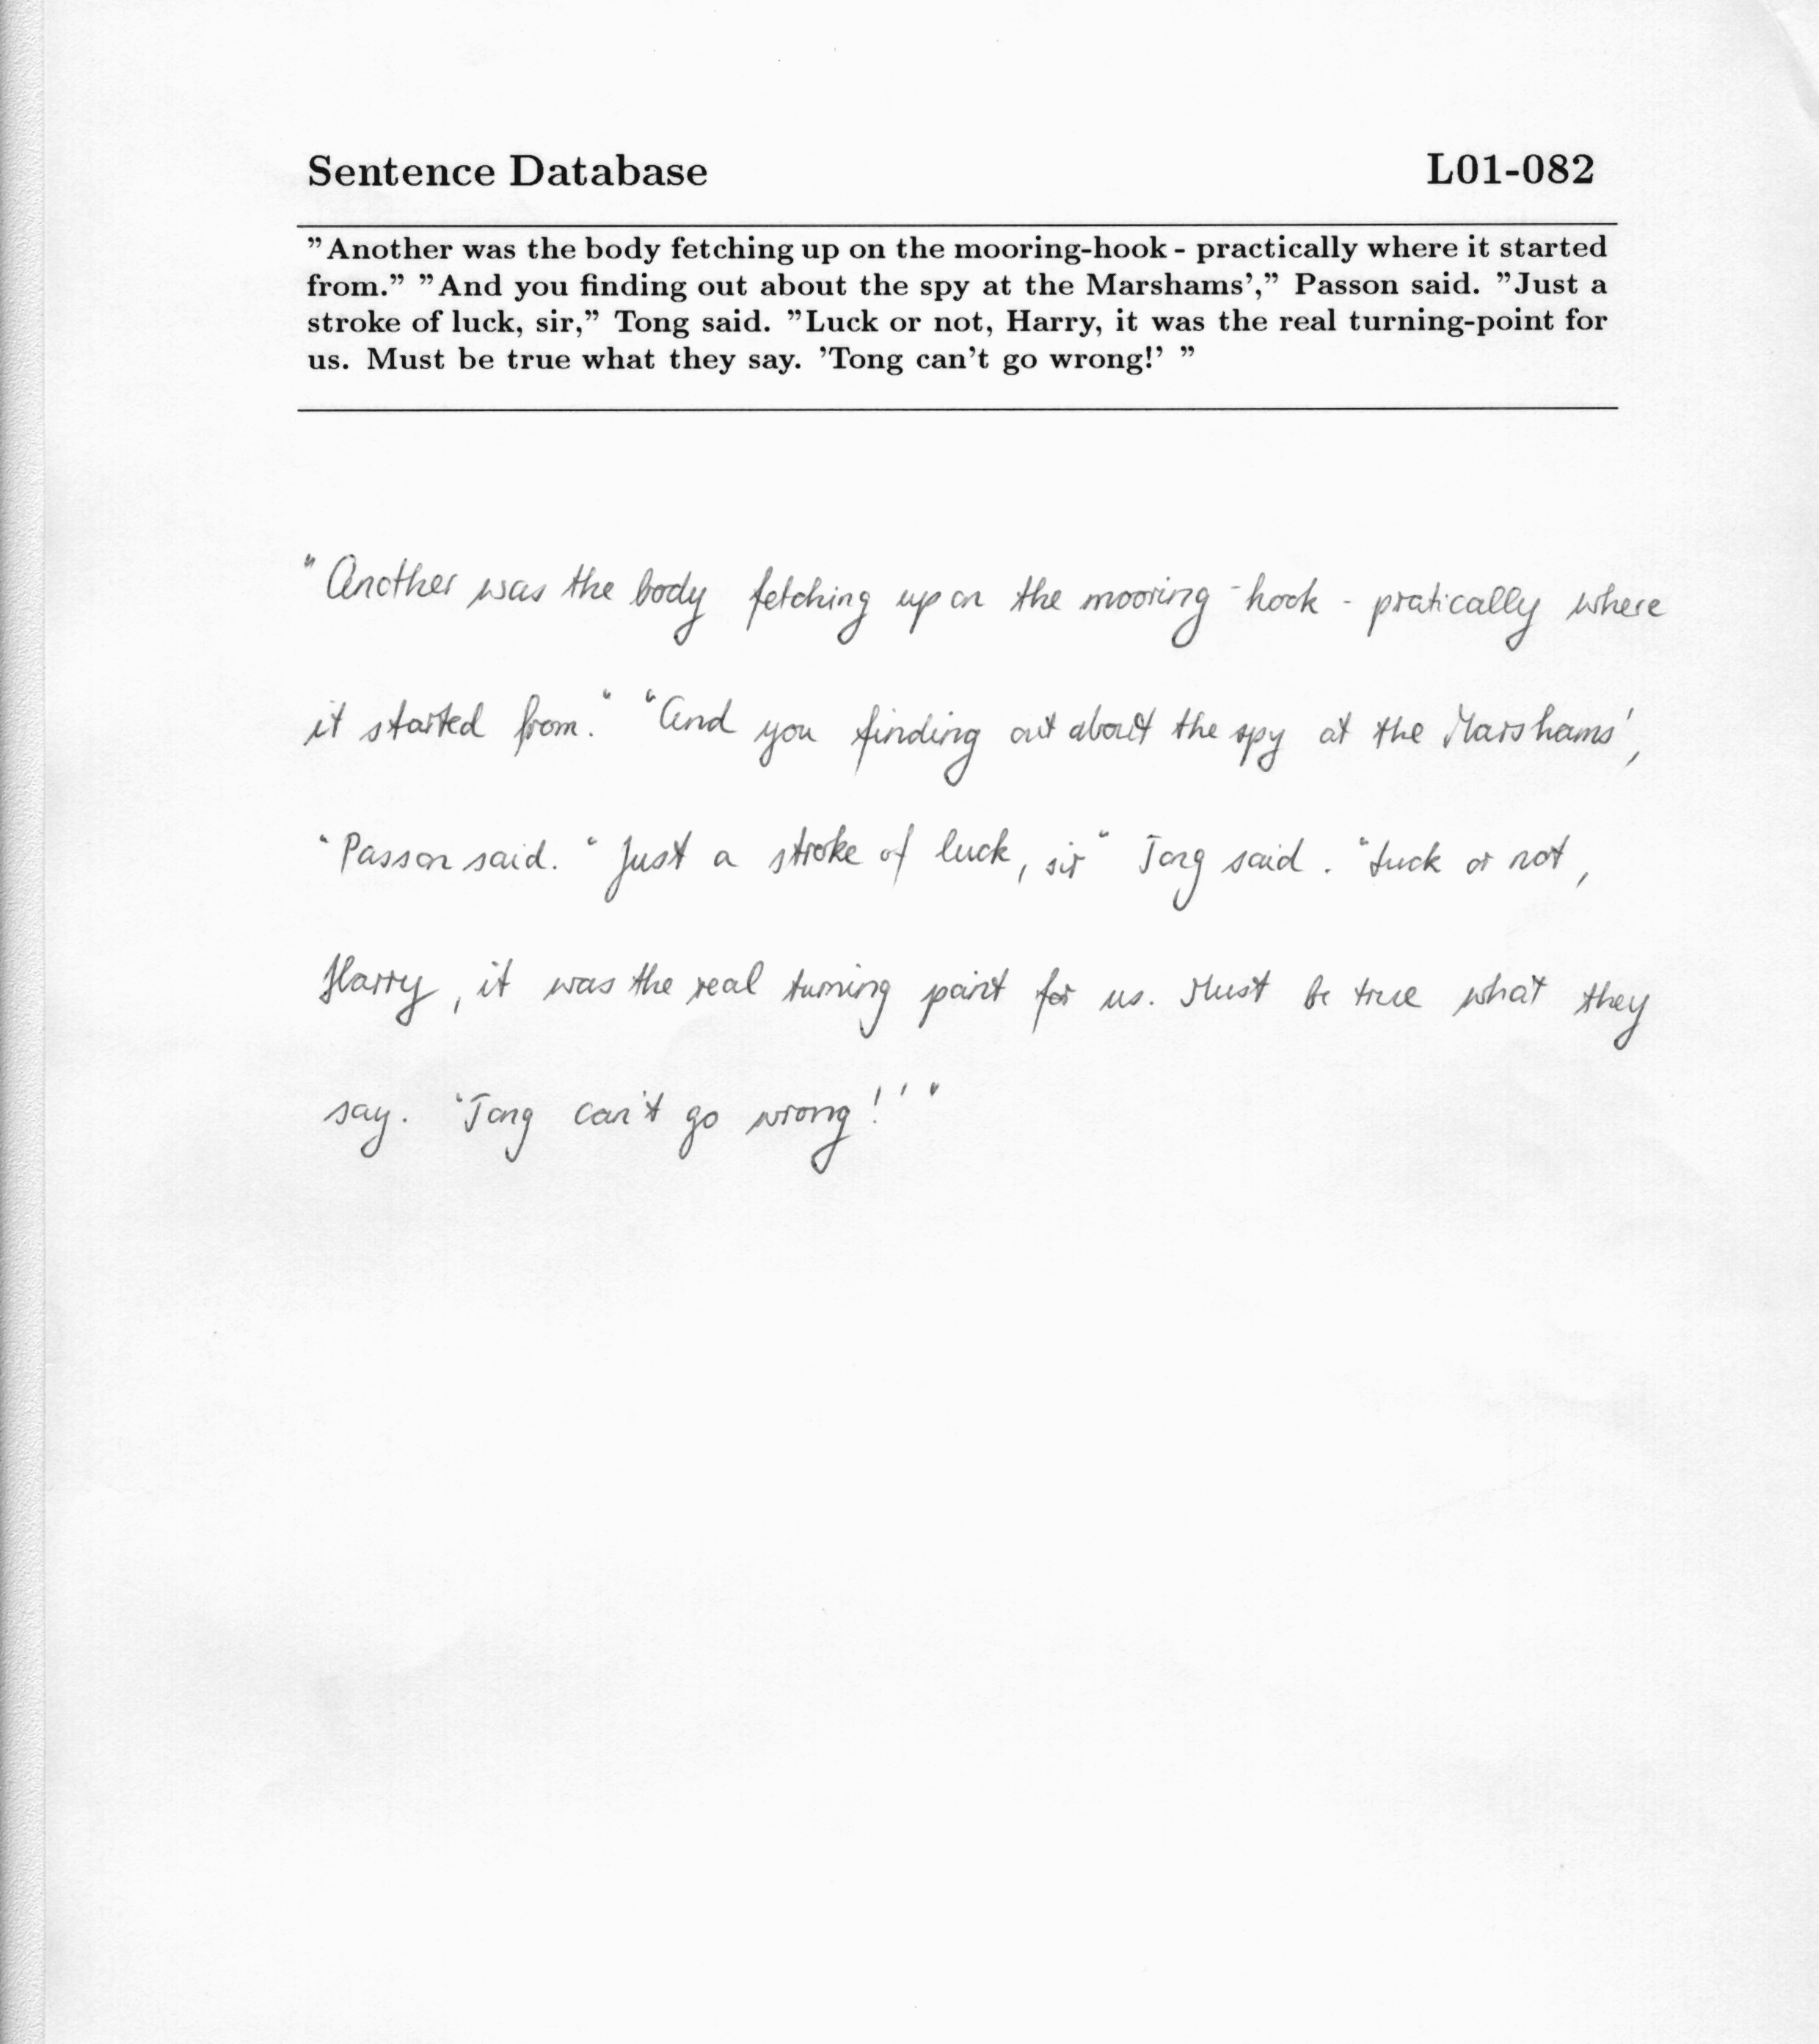 Sentence Database L01-082
"Another was the body fetching up on the mooring-hook - practically where it started
from." "And you finding out about the spy at the Marshams'," Passon said. "Just a
stroke of luck, sir," Tong said. "Luck or not, Harry, it was the real turning-point for
us. Must be true what they say. 'Tong can't go wrong!' "
"Another was the body fetching up on the mooring-hook - pratically where
it started from." "And you finding out about the spy at the Marshams',
"Passon said. "Just a stroke of luck, sir" Tong said. "Luck or not,
Harry, it was the real turning point for us. Must be true what they
say. 'Tong can't go wrong!' "